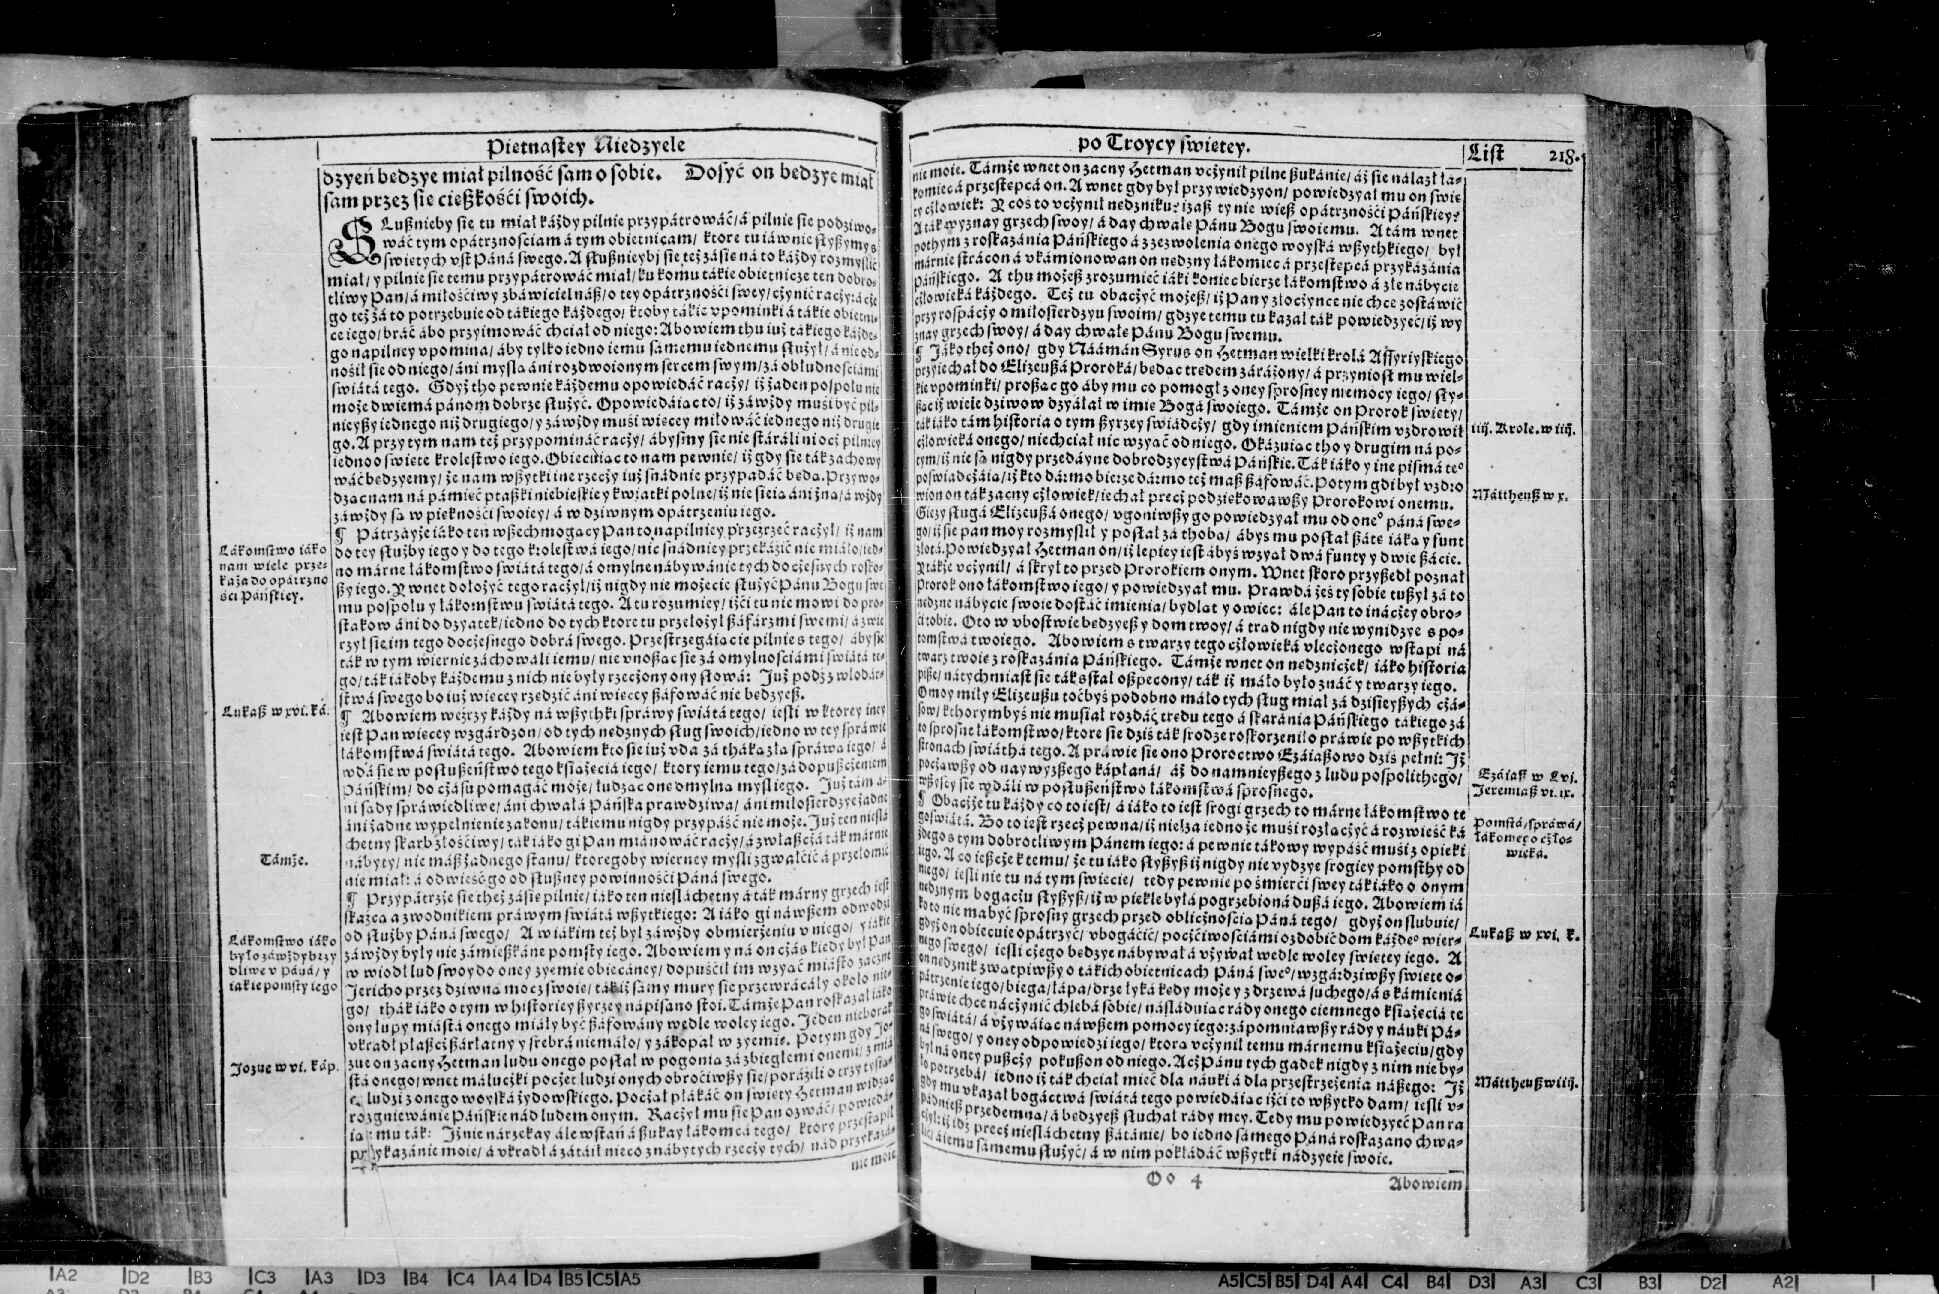 Pietnastey Niedzyele
dzyeń bedzye miał pilność sam o sobie. Dosyć on bedzye miał
sam przez sie cięszkośći swoich.
SLusznieby sie tu miał każdy pilnie przypátrowáć/ á pilnie sie podziwo-
wáć tym opátrznosciam á tym obietnicam/ ktore tu iáwnie słyszymy s
swietych vst Páná swego. A słusznieby sie też zásie ná to káżdy rozmyślić
miał/ y pilnie sie temu przypátrowáć miał/ ku komu tákie obietnicze ten dobro-
tliwy Pan/ á miłościwy zbáwiciel nász/ o tey opátrznośći swey/ czynić raczy: á cze
go też zá to potrzebuie od tákiego káżdego/ ktoby tákie vpominki á tákie obietni-
ce iego/ bráć ábo przyimowáć chciał od niego: Abowiem thu iuż tákiego káżde-
go napilney vpomina/ áby tylko iedno iemu sámemu iednemu służył/ á nie od-
nośił sie od niego/ áni myslą áni rozdwoionym sercem swym/ zá obłudnosciámi
swiátá tego. Gdyż tho pewnie káżdemu opowiedáć raczy/ iż żaden pospołu nie
może dwiemá pánom dobrze służyć. Opowiedáiac to/ iż záwżdy muśi być pil-
nieyszy iednego niż drugiego/ y záwżdy muśi wiecey miłowáć iednego niż drugie
go. A przy tym nam też przypomináć raczy/ ábysmy sie nie stáráli ni ocż pilniey
iedno o swiete krolestwo iego. Obiecuiac to nam pewnie/ iż gdy sie ták záchowy
wáć bedzyemy/ że nam wszytki ine rzeczy iuż snádnie przypádáć beda. Przywo-
dzac nam ná pámieć ptaszki niebieskie y kwiatki polne/ iż nie sieia áni żna/ á wżdy
záwżdy sa w pieknośći swoiey/ á w dziwnym opátrzeniu iego.
¶ Pátrzayże iáko ten wszechmogacy Pan to napilniey przeźrzeć raczył/ iż nam
do tey służby iego y do tego krolestwá iego/ nic snádniey przekázić nie miáło/ ied-
no márne łákomstwo swiátá tego/ á omylne nábywánie tych doczesnych rosko-
szy iego. Y wnet dołożyć tego raczył/ iż nigdy nie możecie służyć Pánu Bogu swe
mu pospołu y łákomstwu swiátá tego. A tu rozumiey/ iżći tu nie mowi do pro-
stakow áni do dzyatek/ iedno do tych ktore tu przełożył száfárzmi swemi/ á zwie
rzył sie im tego doczesnego dobrá swego. Przestrzegáiac ie pilnie s tego/ áby sie
ták w tym wiernie záchowáli iemu/ nie vnoszac sie zá omylnosciámi swiátá te-
go/ ták iákoby káżdemu z nich nie były rzeczony ony słowá: Już podź z włodár-
stwá swego bo iuż wiecey rzedzić áni wiecey száfowáć nie bedzyesz.
¶ Abowiem weźrzy káżdy ná wszythki spráwy swiátá tego/ iesli w ktorey iney
iest Pan wiecey wzgárdzon/ od tych nedznych sług swoich/ iedno w tey spráwie
łákomstwá swiátá tego. Abowiem kto sie iuż vda zá tháka zła spráwa iego/ á
wda sie w posłuszeństwo tego ksiażeciá iego/ ktory iemu tego/ zá dopuszczeniem
Páńskim/ do czásu pomagáć może/ łudzac one omylna mysl iego. Już tám á-
ni sady spráwiedliwe/ áni chwałá Páńska prawdziwa/ áni miłosierdzye żadne
áni żadne wypełnienie zakonu/ tákiemu nigdy przypáść nie może. Już ten nieslá
chetny skarb złościwy/ ták iáko gi Pan miánowáć raczy/ á zwłaszczá ták márnie
nábyty/ nie ma żadnego stanu/ ktoregoby wierney mysli zgwałcić á przełomić
nie miał: á odwieść go od słuszney powinnośći Páná swego.
¶ Przypátrzże sie theż zásie pilnie/ iáko ten nieslachetny á ták márny grzech iest
skażca á zwodnikiem práwym swiátá wszytkiego: A iáko gi ná wszem odwodzi
od służby Páná swego/ A w iákim też był záwżdy obmierzeniu v niego/ y iákie
záwżdy były nie zámieszkáne pomsty iego. Abowiem y ná on czás kiedy był Pan
w wiodł lud swoy do oney zyemie obiecáney/ dopuśćił im wzyać miásto zacne
Jericho przez dziwna moc swoię/ ták iż sámy mury sie przewrácáły około nie-
go/ thák iáko o tym w historiey szyrzey nápisano stoi. Támże Pan roskazał iáko
ony łupy miástá onego miáły być száfowány wedle woley iego. Jeden nieborak
vkradł płaszcz szárłatny y srebrá niemáło/ y zákopał w zyemię. Potym gdy Jo-
zue on zacny Hetman ludu onego posłał w pogonia zá zbiegłemi onemi/ z miá
stá onego/ wnet máluczki poczet ludzi onych obroćiwszy sie/ poráźili o trzy tysią-
cá ludzi z onego woyská żydowskiego. Począł płákáć on swiety Hetman widzac
rozgniewánie Páńskie nád ludem onym. Raczył mu sie Pan ozwáć/ powieda-
iac mu ták: Jż nie nárzekay ále wstań á szukay łákomcá tego/ ktory przestąpił
przykazánie moie/ á vkradł á zátáił nieco z nábytych rzeczy tych/ nád przykazá-
nie moie
Łákomstwo iáko
nam wiele prze-
káża do opátrzno
śći Páńskiey.
Lukasz w xvi. ká.
Támże.
Łákomstwo iáko
było záwżdy brzy
dliwe v Páná/ y
iákie pomsty iego
Jozue w vi. káp.
po Troycy swietey.
List 218.
nie moie. Támże wnet on zacny Hetman vczynił pilne szukánie/ áż sie nálazł łá-
komiec á przestepcá on. A wnet gdy był przywiedzyon/ powiedzyał mu on swie
ty człowiek: Y coś to vczynił nedzniku? izasz ty nie wiesz opátrznośći Páńskiey?
A ták wyznay grzech swoy/ á day chwałe Pánu Bogu swoiemu. A tám wnet
pothym z roskazánia Páńskiego á z zezwolenia onego woyská wszythkiego/ był
márnie strácon á vkámionowan on nedzny łákomiec á przestepcá przykazánia
Páńskiego. A thu możesz zrozumieć iáki koniec bierze łákomstwo á złe nábycie
człowieká káżdego. Też tu obaczyć możesz/ iż Pan y złoczyńce nie chce zostáwić
przy rospáczy o miłosierdzyu swoim/ gdzye temu tu kazał ták powiedzyeć/ iż wy
znay grzech swoy/ á day chwałe Pánu Bogu swemu.
¶ Jáko theż ono/ gdy Náámán Syrus on Hetman wielki krolá Assyriyskiego
przyiechał do Elizeuszá Proroká/ bedac tredem záráżony/ á przyniosł mu wiel-
kie vpominki/ prosząc go áby mu co pomogł z oney sprosney niemocy iego/ sły-
szac iż wiele dziwow dzyáłał w imię Bogá swoiego. Támże on Prorok swiety/
ták iáko tám historia o tym szyrzey swiádczy/ gdy imieniem Páńskim vzdrowił
człowieká onego/ niechciał nic wzyáć od niego. Okázuiac tho y drugim ná po-
tym/ iż nie sa nigdy przedáyne dobrodzyeystwá Páńskie. Ták iáko y ine pismá te°
poświádczáią/ iż kto dármo bierze dármo też ma száfowáć. Potym gdi był vzdro
wion on ták zacny człowiek/ iechał precz podziekowawszy Prorokowi onemu.
Giezy sługá Elizeuszá onego/ vgoniwszy go powiedzyał mu od one° páná swe-
go/ iż sie pan moy rozmyslił y posłał zá thoba/ ábyś mu posłał száte iáka y funt
złotá. Powiedzyał Hetman on/ iż lepiey iest ábyś wzyał dwá funty y dwie szácie.
Ytákże vczynił/ á skrył to przed Prorokiem onym. Wnet skoro przyszedł poznał
Prorok ono łákomstwo iego/ y powiedzyał mu. Prawdá żeś ty sobie tuszył zá to
nedzne nábycie swoie dostáć imienia/ bydlat y owiec: ále Pan to ináczey obro-
ci tobie. Oto w vbostwie bedzyesz y dom twoy/ á trąd nigdy nie wynidzye s po-
tomstwá twoiego. Abowiem s twarzy tego człowieká vleczonego wstapi ná
twarz twoię z roskazánia Páńskiego. Támże wnet on nedzniczek/ iáko historia
pisze/ nátychmiast sie ták stał oszpecony/ ták iż máło było znáć y twarzy iego.
O moy miły Elizeuszu toćbyś podobno máło tych sług miał zá dzisieyszych czá-
sow/ kthorymbyś nie musiał rozdáć tredu tego á skaránia Páńskiego tákiego zá
to sprosne łákomstwo/ ktore sie dziś ták srodze roskorzeniło práwie po wszytkich
stronach swiáthá tego. A práwie sie ono Proroctwo Ezáiaszowo dziś pełni: Jż
począwszy od naywyższego kápłaná/ áż do namnieyszego z ludu pospolithego/
wszyscy sie wdáli w posłuszeństwo łákomstwá sprosnego.
¶ Obaczże tu káżdy co to iest/ á iáko to iest srogi grzech to márne łákomstwo te
go swiátá. Bo to iest rzecz pewna/ iż nielza iedno że muśi rozłaczyć á rozwieść ká
żdego s tym dobrotliwym Pánem iego: á pewnie tákowy wypáść muśi z opieki
iego. A co ieszcze k temu/ że tu iáko słyszysz iż nigdy nie vydzye srogiey pomsthy od
niego/ iesli nie tu ná tym swiecie/ tedy pewnie po śmierći swey ták iáko o onym
nedznym bogaczu słyszysz/ iż w piekle była pogrzebiona duszá iego. Abowiem iá
ko to nie ma być sprosny grzech przed oblicznoscia Páná tego/ gdyż on slubuie/
gdyż on obiecuie opátrzyć/ vbogáćić/ poczciwosciámi ozdobić dom káżde° wier-
nego swego/ iesli czego bedzye nábywał á vżywał wedle woley swietey iego. A
on nedznik zwątpiwszy o tákich obietnicach Páná swe°/ wzgárdziwszy swiete o-
pátrzenie iego/ biega/ łápa/ drze łyká kedy może y z drzewá suchego/ á s kámienia
práwie chce náczynić chlebá sobie/ násláduiac rády onego ciemnego ksiażeciá te
go swiátá/ á vżywáiac ná wszem pomocy iego: zápomniawszy rády y náuki Pá-
ná swego/ y oney odpowiedzi iego/ ktora vczynił temu márnemu ksiażeciu/ gdy
był ná oney puszczy pokuszon od niego. Acz Pánu tych gadek nigdy z nim nie by-
ło potrzebá/ iedno iż ták chciał mieć dla náuki á dla przestrzeżenia nászego: Jż
gdy mu vkazał bogáctwá swiátá tego powiedáiac iżći to wszytko dam/ iesli v-
pádniesz przedemna/ á bedzyesz słuchał rády mey. Tedy mu powiedzyeć Pan ra
czył: iż idź precz nieslachetny szátanie/ bo iedno sámego Páná roskazano chwa-
lić á iemu sámemu służyć/ á w nim pokładáć wszytki nádzyeie swoie.
Oo 4
Abowiem
iiij. Krole. w iiij.
Máttheusz w x.
Ezáiasz w Lvi.
Jeremiasz vi. ix.
Pomstá/ spráwá/
łákomego czło-
wieká.
Lukasz w xvi. k.
Máttheusz w iiij.